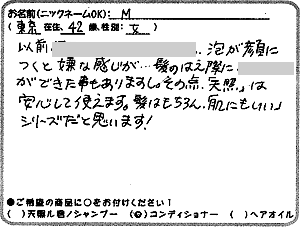 お名前(ニックネームOK): M
(東京 在住、42歳、性別: 女)
以前 泡が顔に
つくと嫌な感じが…髪のはえ際に
ができた事もありますし。その点、「天照」は
安心して使えます。髪はもちろん、肌にもいい
シリーズだと思います!
●ご希望の商品に○をお付けください!
( )天照ル宮ノシャンプー (○)コンディショナー ( )ヘアオイル